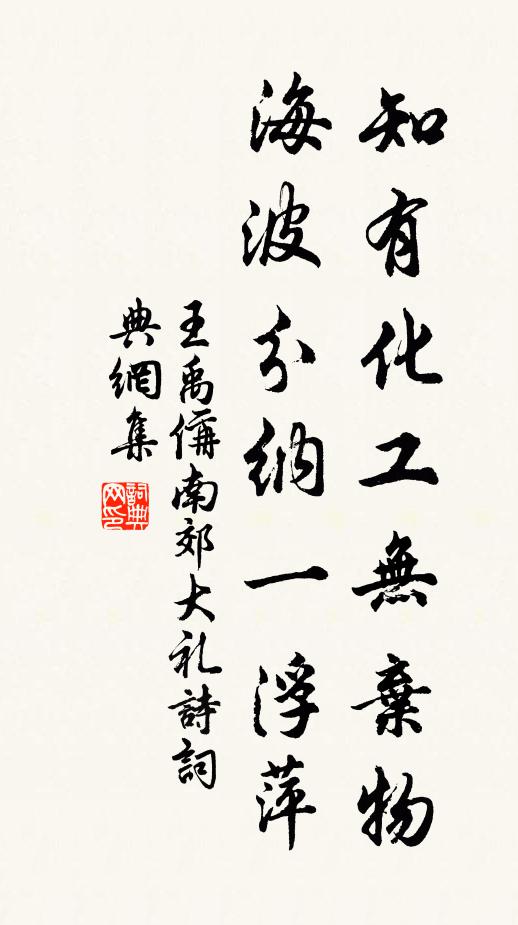 知有化工無棄物
海波分納一浮萍
王禹偁南郊大礼詩詞
典網集
詞典網印